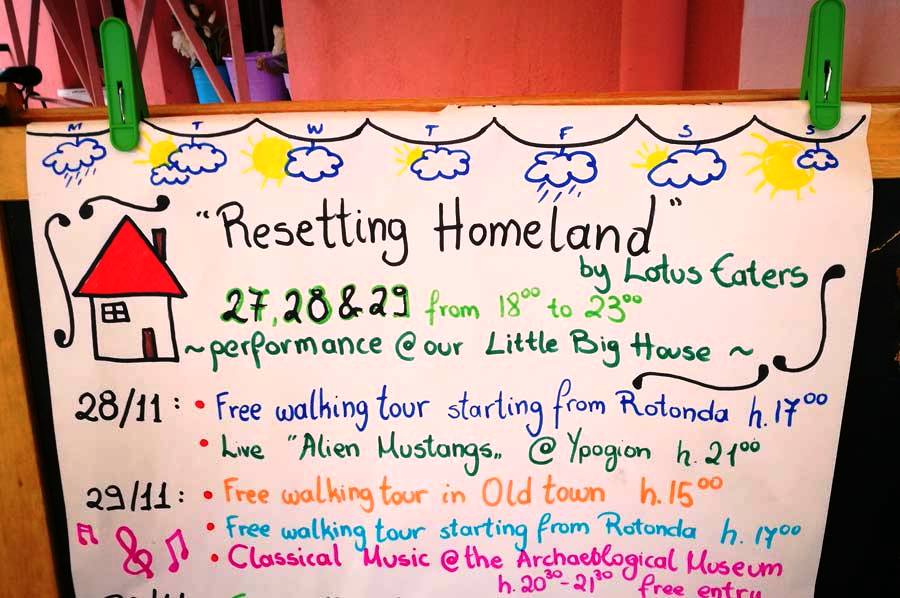 M T W T F S S
"Resetting Homeland"
by Lotus Eaters
27, 28 & 29 from 18⁰⁰ to 23⁰⁰
~performance @ our Little Big House ~
28/11: • Free walking tour starting from Rotonda h.17⁰⁰
• Live "Alien Mustangs„ @ Ypogion h.21⁰⁰
29/11: • Free walking tour in Old town h.15⁰⁰
• Free walking tour starting from Rotonda h.17⁰⁰
• Classical Music @ the Archaeological Museum
h.20³⁰-21³⁰ free entry